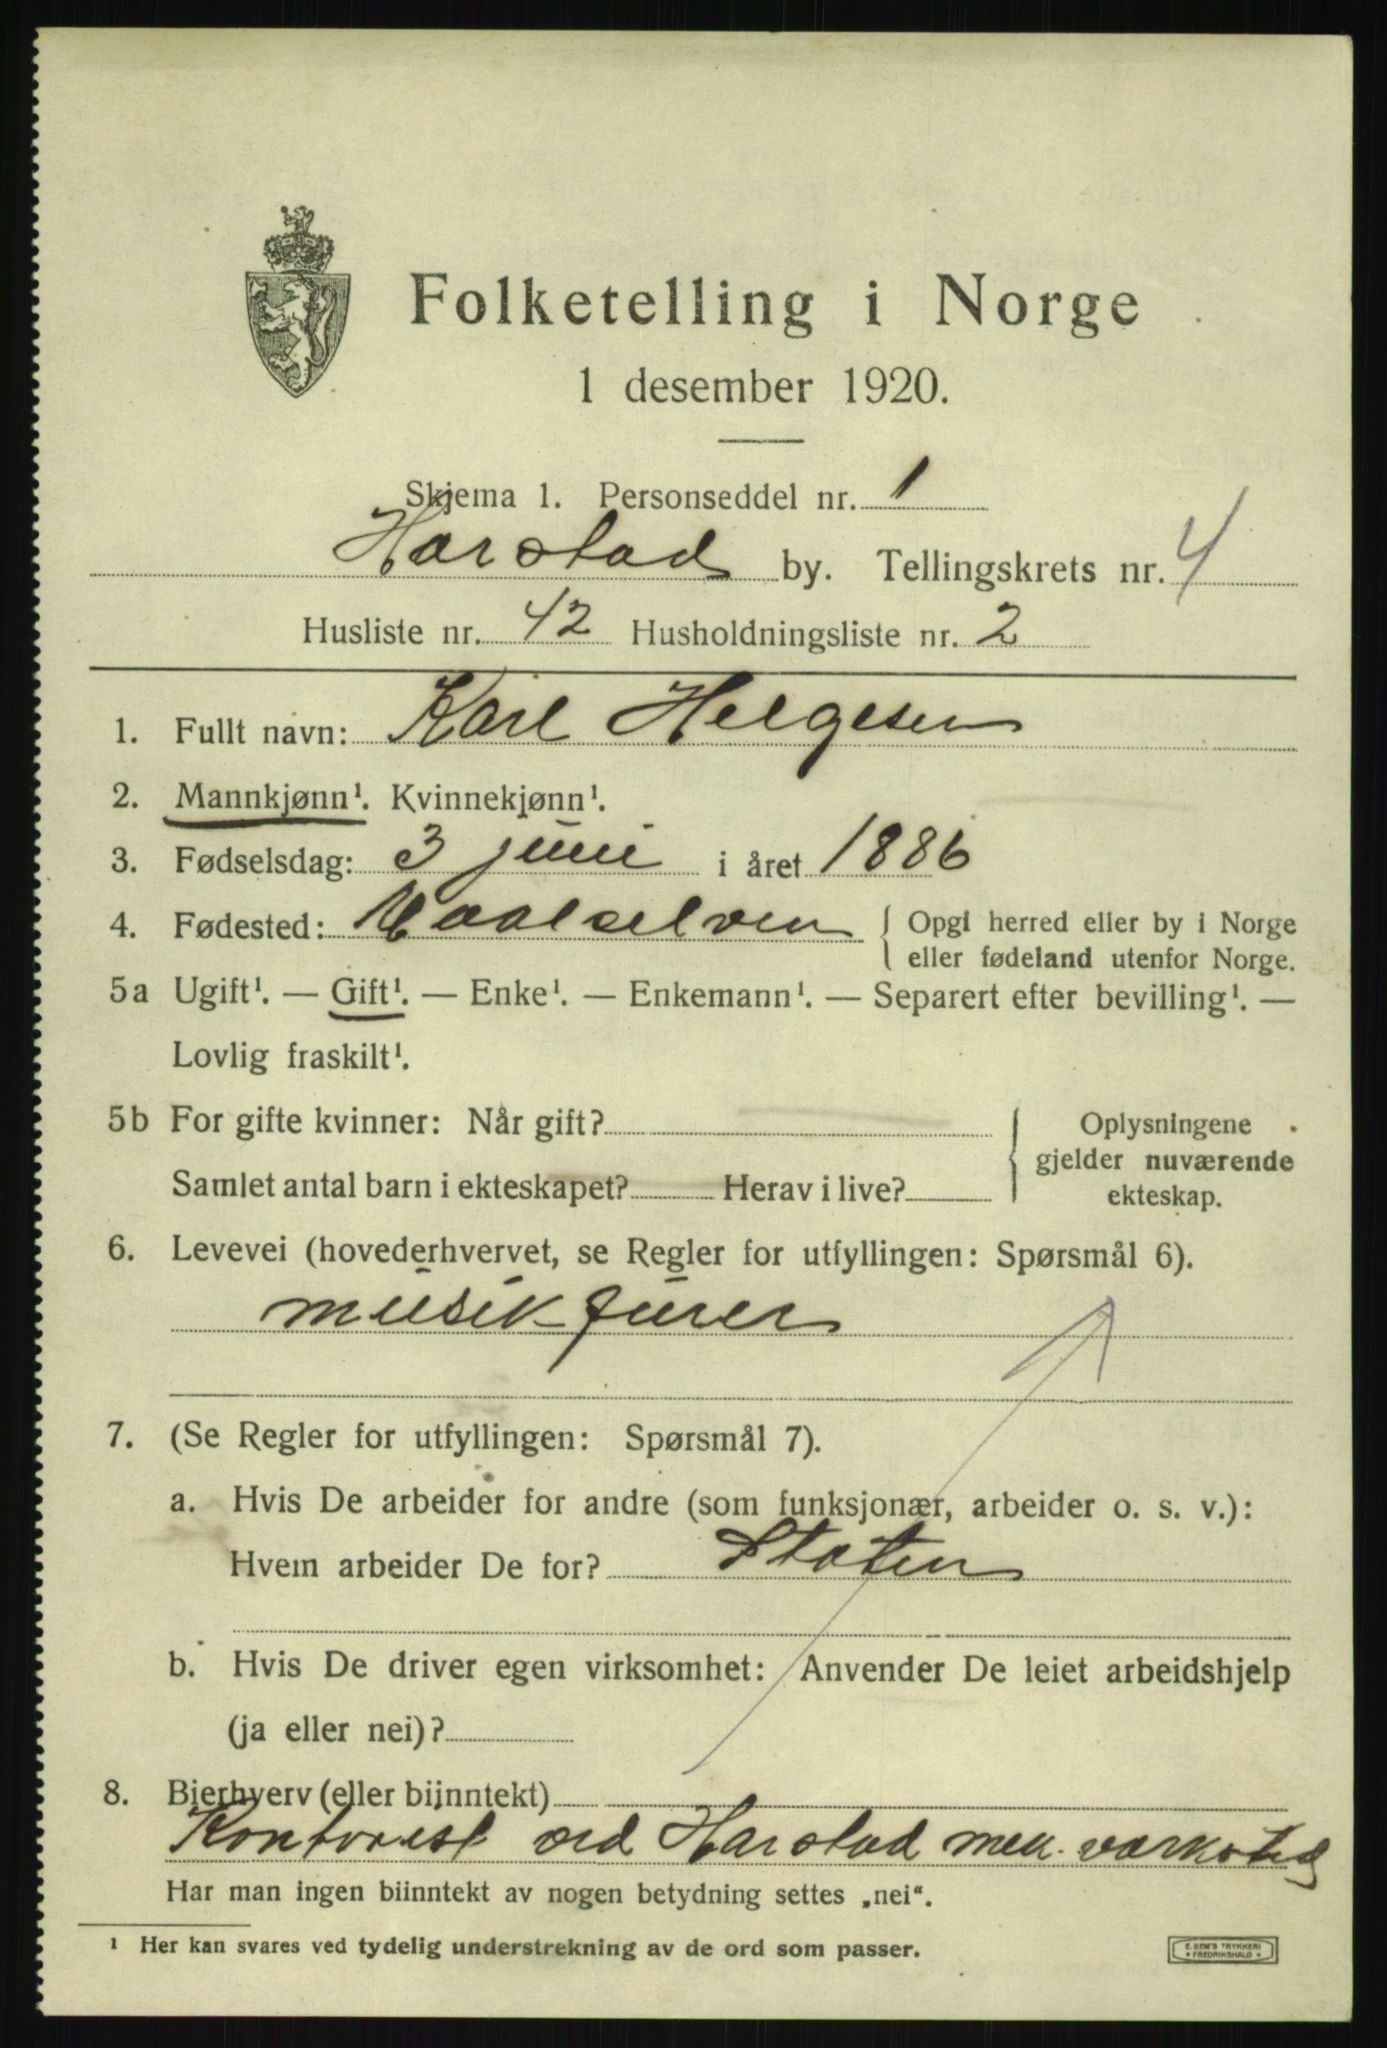 Folketelling i Norge
1 desember 1920.
Skjema 1. Personseddel nr. 1
Harstad by. Tellingskrets nr. 4
Husliste nr. 42 Husholdningsliste nr. 2
1. Fullt navn: Karl Helgesen
2. Mannkjønn¹. Kvinnekjønn¹.
3. Fødselsdag: 3 juni i året 1886
4. Fødested: Maalselven { Opgi herred eller by i Norge
eller fødeland utenfor Norge.
5a Ugift¹. — Gift¹. — Enke¹. — Enkemann¹. — Separert efter bevilling¹. —
Lovlig fraskilt¹.
5b For gifte kvinner: Når gift?
Samlet antal barn i ekteskapet? Herav i live?
{ Oplysningene
gjelder nuværende
ekteskap.
6. Levevei (hovederhvervet, se Regler for utfyllingen: Spørsmål 6).
musikfurer
7. (Se Regler for utfyllingen: Spørsmål 7).
a. Hvis De arbeider for andre (som funksjonær, arbeider o. s. v.):
Hvem arbeider De for? Staten
b. Hvis De driver egen virksomhet: Anvender De leiet arbeidshjelp
(ja eller nei)?
8. Bierhverv (eller biinntekt)
Kontorist ved Harstad mek. værksted
Har man ingen biinntekt av nogen betydning settes „nei“.
¹ Her kan svares ved tydelig understrekning av de ord som passer.
E. SEM'S TRYKKERI
* FREDRIKSHALD *